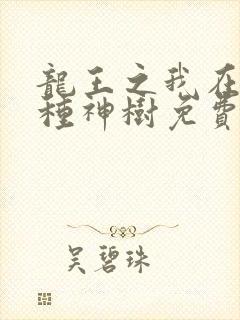 龍王之我在
種神樹免費
吳碧珠